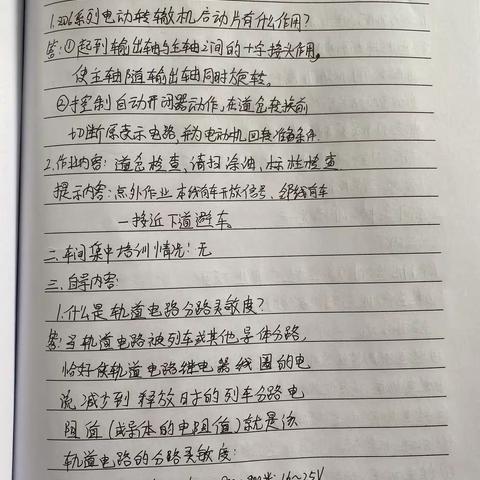 1. ZD6系列电动转辙机启动片有什么作用?
答:①起到输出轴与主轴之间的十字接头作用,
使主轴随输出轴同时旋转。
②控制自动开闭器动作,在道岔转换前
切断原表示电路,并为电动机回转准备条件.
2.作业内容:道岔检查、清扫涂油,标柱检查
提示内容:点外作业 本线有车开放信号、邻线有车
一接近下道避车。
二.车间集中培训情况:无
三.自导内容:
1.什么是轨道电路分路灵敏度?
答:当轨道电路被列车或其他导体分路,
恰好使轨道电路继电器线圈的电
流减少到释放时的列车分路电
阻值(或导体的电阻值)就是该
轨道电路的分路灵敏度.
16~25V